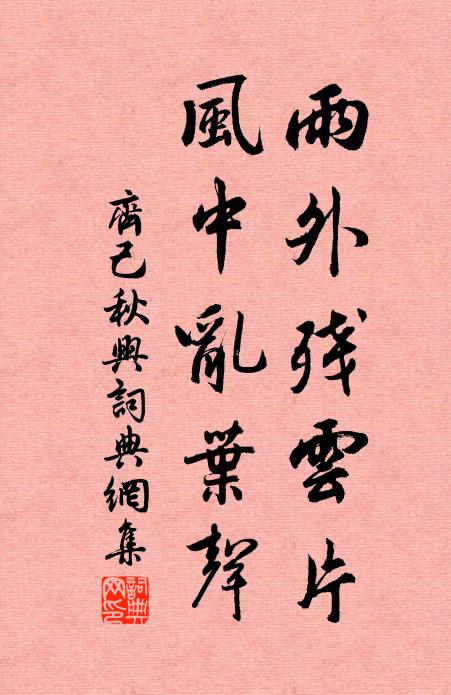 雨外残雲片
風中亂葉聲
齊己秋興詞典網集
詞典網印